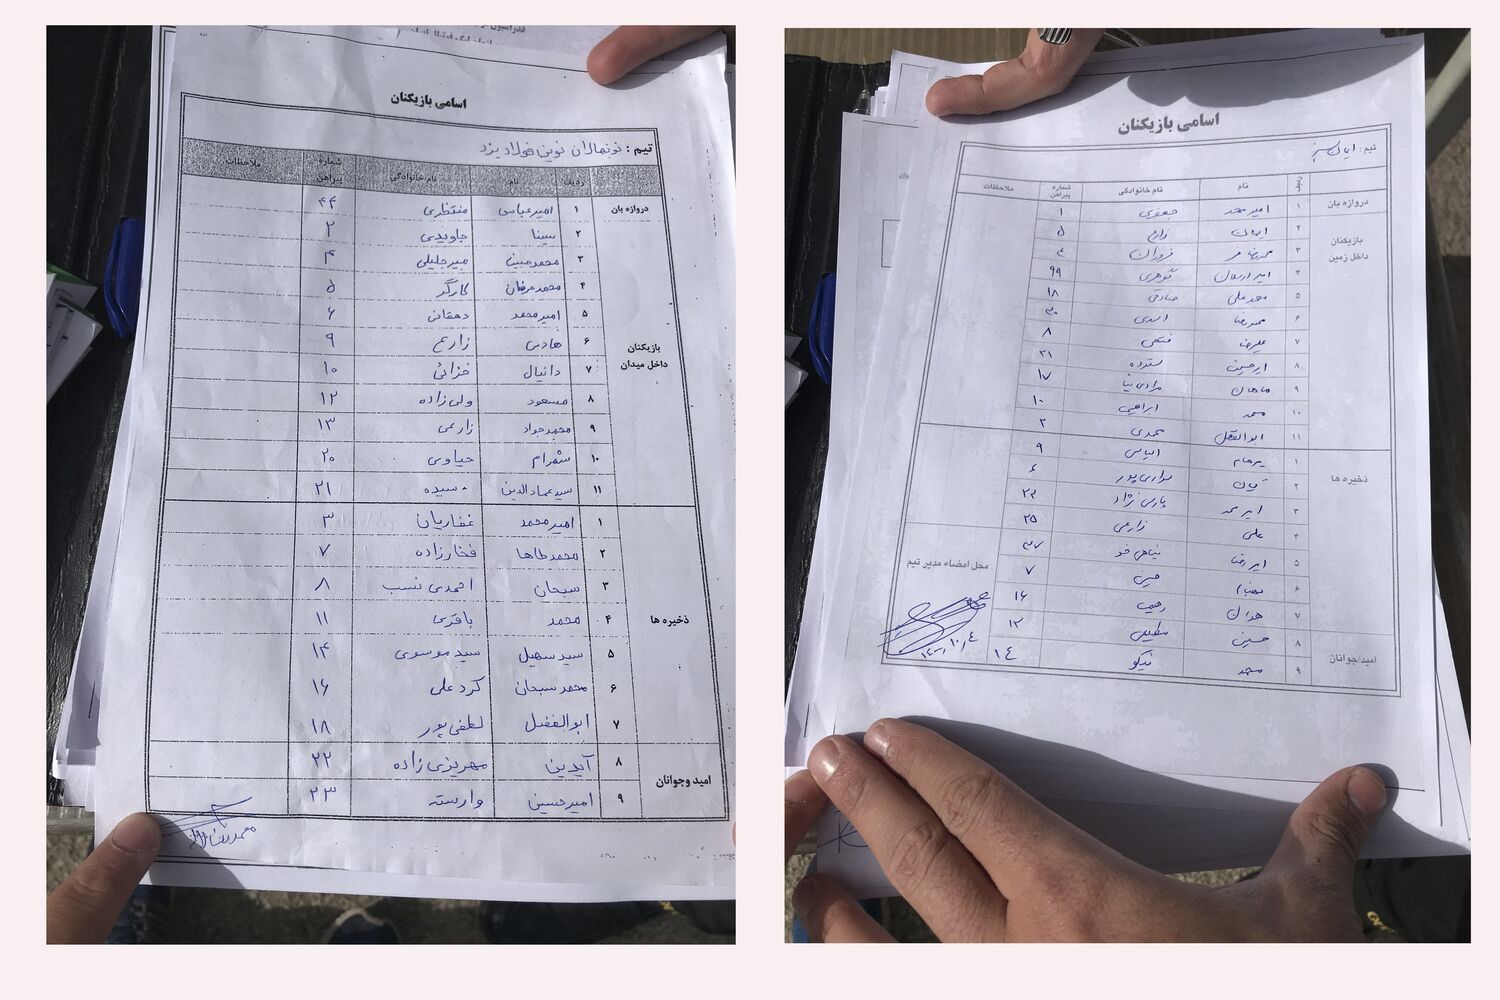 اسامی بازیکنان
تیم : نونهالان نوین فولاد یزد
ردیف نام نام خانوادگی شماره پیراهن ملاحظات
دروازه بان ۱ امیرعباس منتظری ۴۴
بازیکنان داخل میدان
۲ سینا جاویدی ۲
۳ محمدمبینا میرجلیلی ۴
۴ محمدعرفان کارگر ۵
۵ امیرمحمد دهقانی ۶
۶ هادی زارع ۹
۷ دانیال خزائی ۱۰
۸ مسعود ولی زاده ۱۲
۹ محمدجواد زارعی ۱۳
۱۰ شهرام حیاوی ۲۰
۱۱ سیدعمادالدین سیده ۲۱
ذخیره ها
۱ امیرمحمد غفاریان ۳
۲ محمدطاها فخارزاده ۷
۳ سبحان احمدی نسب ۸
۴ محمد باقری ۱۱
۵ سیدسهیل سیدموسوی ۱۴
۶ محمدسبحان کردعلی ۱۶
۷ ابوالفضل لطفی پور ۱۸
امید وجوانان
۸ آیدین مهریزی زاده ۲۲
۹ امیرحسین وارسته ۲۳
اسامی بازیکنان
تیم :
ردیف نام نام خانوادگی شماره پیراهن ملاحظات
دروازه بان ۱ امیرمحمد جعفری ۱
بازیکنان داخل زمین
۲ ایمان زارع ۵
۳ فروزان ۴
۴ گوهری ۹۹
۵ محمدعلی صادقی ۱۸
۶ محمدرضا اسدی ۳۰
۷ علیرضا فتحی ۸
۸ امیرحسین ستوده ۲۱
۹ ماهان مرادی نیا ۱۷
۱۰ محمد ابراهیمی ۱۰
۱۱ ابوالفضل محمدی ۲
ذخیره ها
۱ الیاسی ۹
۲ کیان سواری پور ۶
۳ امیرمحمد پارسی نژاد ۲۳
۴ علی زارعی ۲۵
۵ امیررضا نیاهی خو ۲۷
۶ مهنام ۷
۷ رجبی ۱۶
امید/جوانان
۸ حسین مطیعی ۱۲
۹ محمد نیکو ۱۴
محل امضاء مدیر تیم